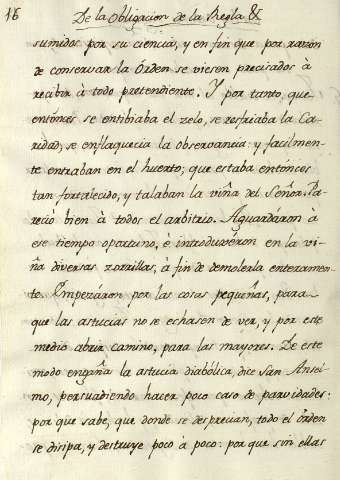 16 De la Obligacion de la Regla &
sumidos por su ciencia, y en fin que por razón
de conservar la Órden se viesen precisados à
recibir à todo pretendiente. Y por tanto, que
entónces se entibiaba el zelo, se resfriaba la Ca-
ridad, se enflaquecia la observancia: y facilmen-
te entraban en el huerto, que estaba entónces
tan fortalecido, y talaban la viña del Señor. Pa-
reció bien à todos el arbitrio. Aguardáron à
ese tiempo oportuno, è introduxéron en la vi-
ña diversas zorrillas, à fin de demolerla enteramen-
te. Empezáron por las cosas pequeñas, para
que las astucias no se echasen de ver, y por este
medio abrir camino, para las mayores. De este
modo engaña la astucia diabólica, dice San Ansel-
mo, persuadiendo hacer poco caso de parvidades:
por que sabe, que donde se desprecian, todo el órden
se disipa, y destruye poco à poco: por que sin ellas